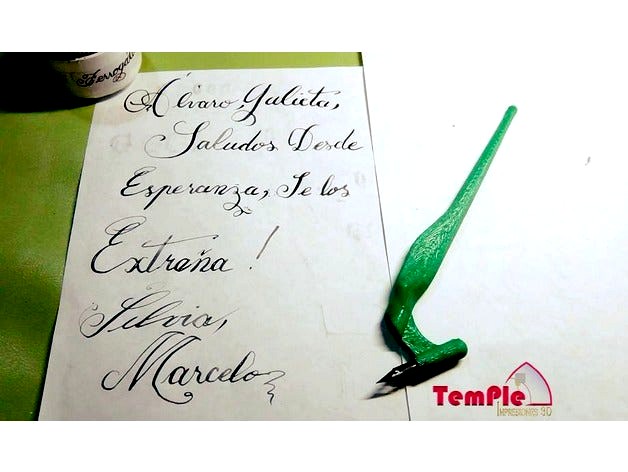 Ferrogal
Álvaro, Julieta,
Saludos Desde
Esperanza, Se los
Extraña !
Silvia,
Marcelo
TemPle
IMPRESIONES 3D